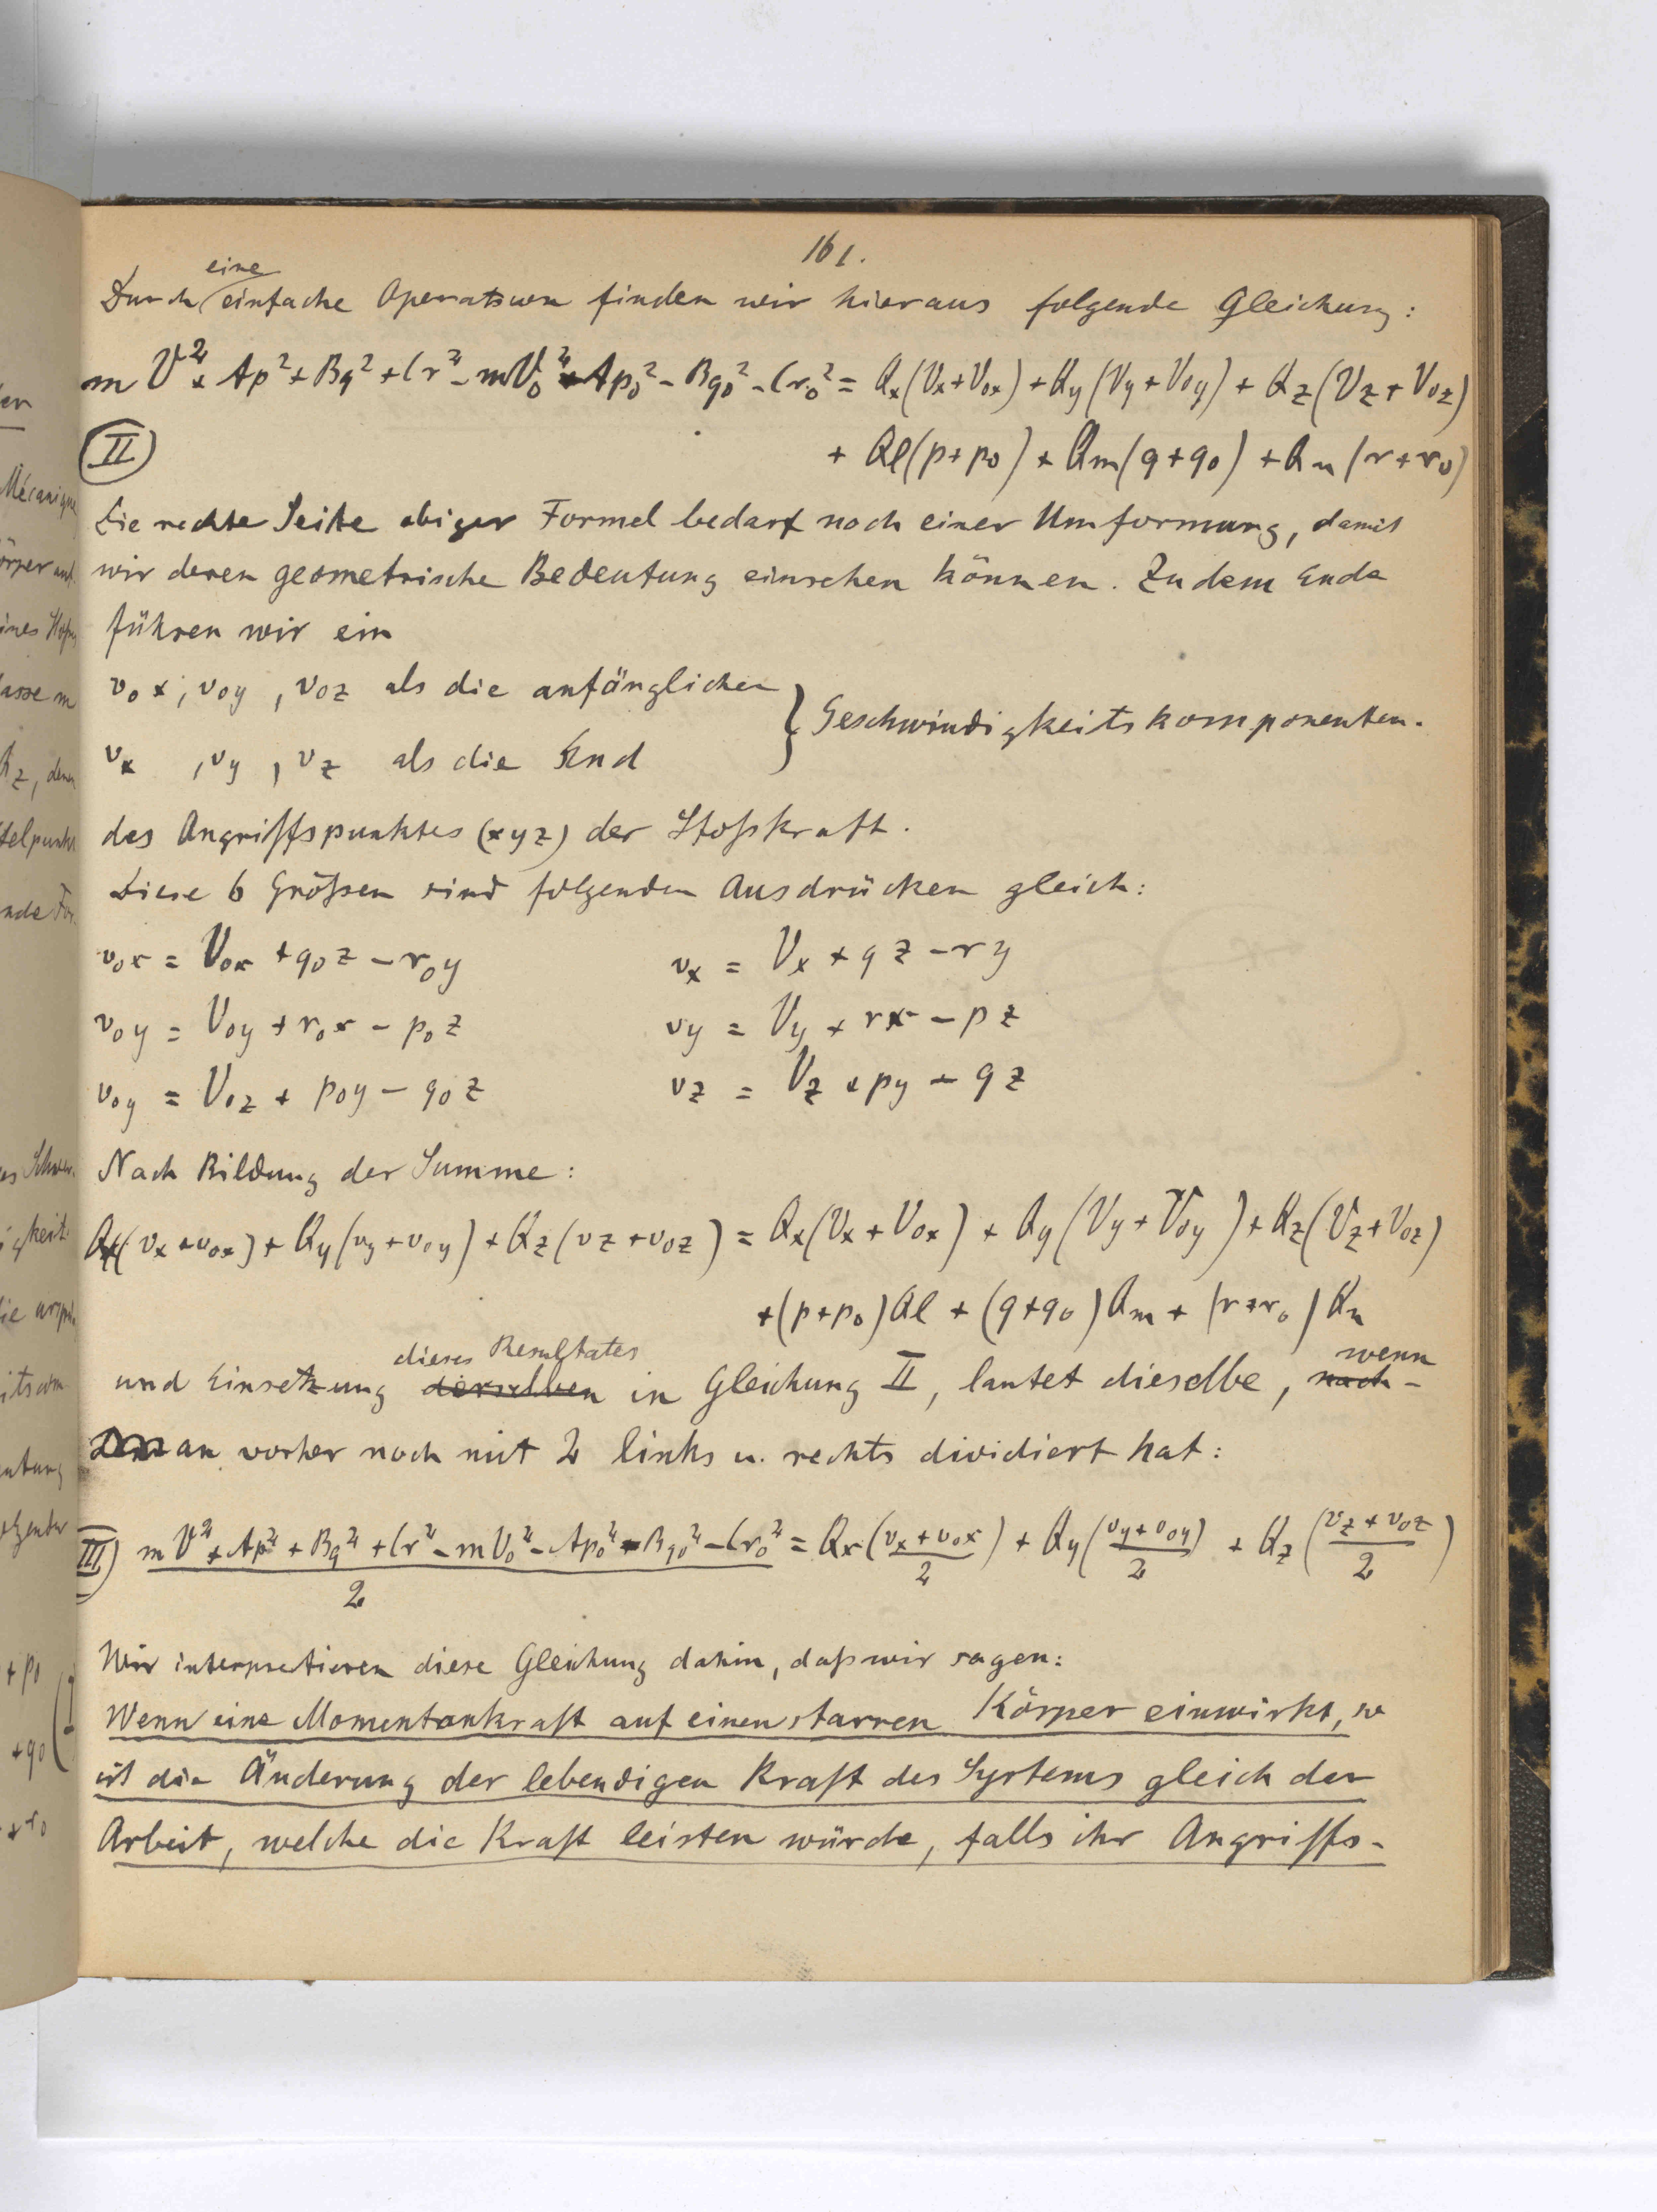 161.
eine
Durch einfache Operationen finden wir hieraus folgende Gleichung:
m V² + Ap² + Bq² + Cr² - mV₀² - Ap₀² - Bq₀² - Cr₀² = Qx(Vx+V₀x) + Qy(Vy+V₀y) + Qz(Vz+V₀z)
II + Ql(p+p₀) + Qm(q+q₀) + Qn(r+r₀)
Die rechte Seite obiger Formel bedarf noch einer Umformung, damit
wir deren geometrische Bedeutung einsehen können. Zu dem Ende
führen wir ein
v₀x, v₀y, v₀z als die anfänglichen
} Geschwindigkeitskomponenten.
vx, vy, vz als die End
des Angriffspunktes (xyz) der Stoßkraft.
Diese 6 Größen sind folgenden Ausdrücken gleich:
v₀x = V₀x + q₀z - r₀y vx = Vx + qz - ry
v₀y = V₀y + r₀x - p₀z vy = Vy + rx - pz
v₀y = V₀z + p₀y - q₀z vz = Vz + py - qz
Nach Bildung der Summe:
Qx(vx+v₀x) + Qy(vy+v₀y) + Qz(vz+v₀z) = Qx(Vx+V₀x) + Qy(Vy+V₀y) + Qz(Vz+V₀z)
+(p+p₀)Ql + (q+q₀)Qm + (r+r₀)Qn
dieses Resultates wenn
und Einsetzung derselben in Gleichung II, lautet dieselbe, nach-
man vorher noch mit 2 links u. rechts dividiert hat:
III) (mV² + Ap² + Bq² + Cr² - mV₀² - Ap₀² - Bq₀² - Cr₀²)/2 = Qx((vx+v₀x)/2) + Qy((vy+v₀y)/2) + Qz((vz+v₀z)/2)
Wir interpretieren diese Gleichung dahin, daß wir sagen:
Wenn eine Momentankraft auf einen starren Körper einwirkt, so
ist die Änderung der lebendigen Kraft des Systems gleich der
Arbeit, welche die Kraft leisten würde, falls ihr Angriffs-